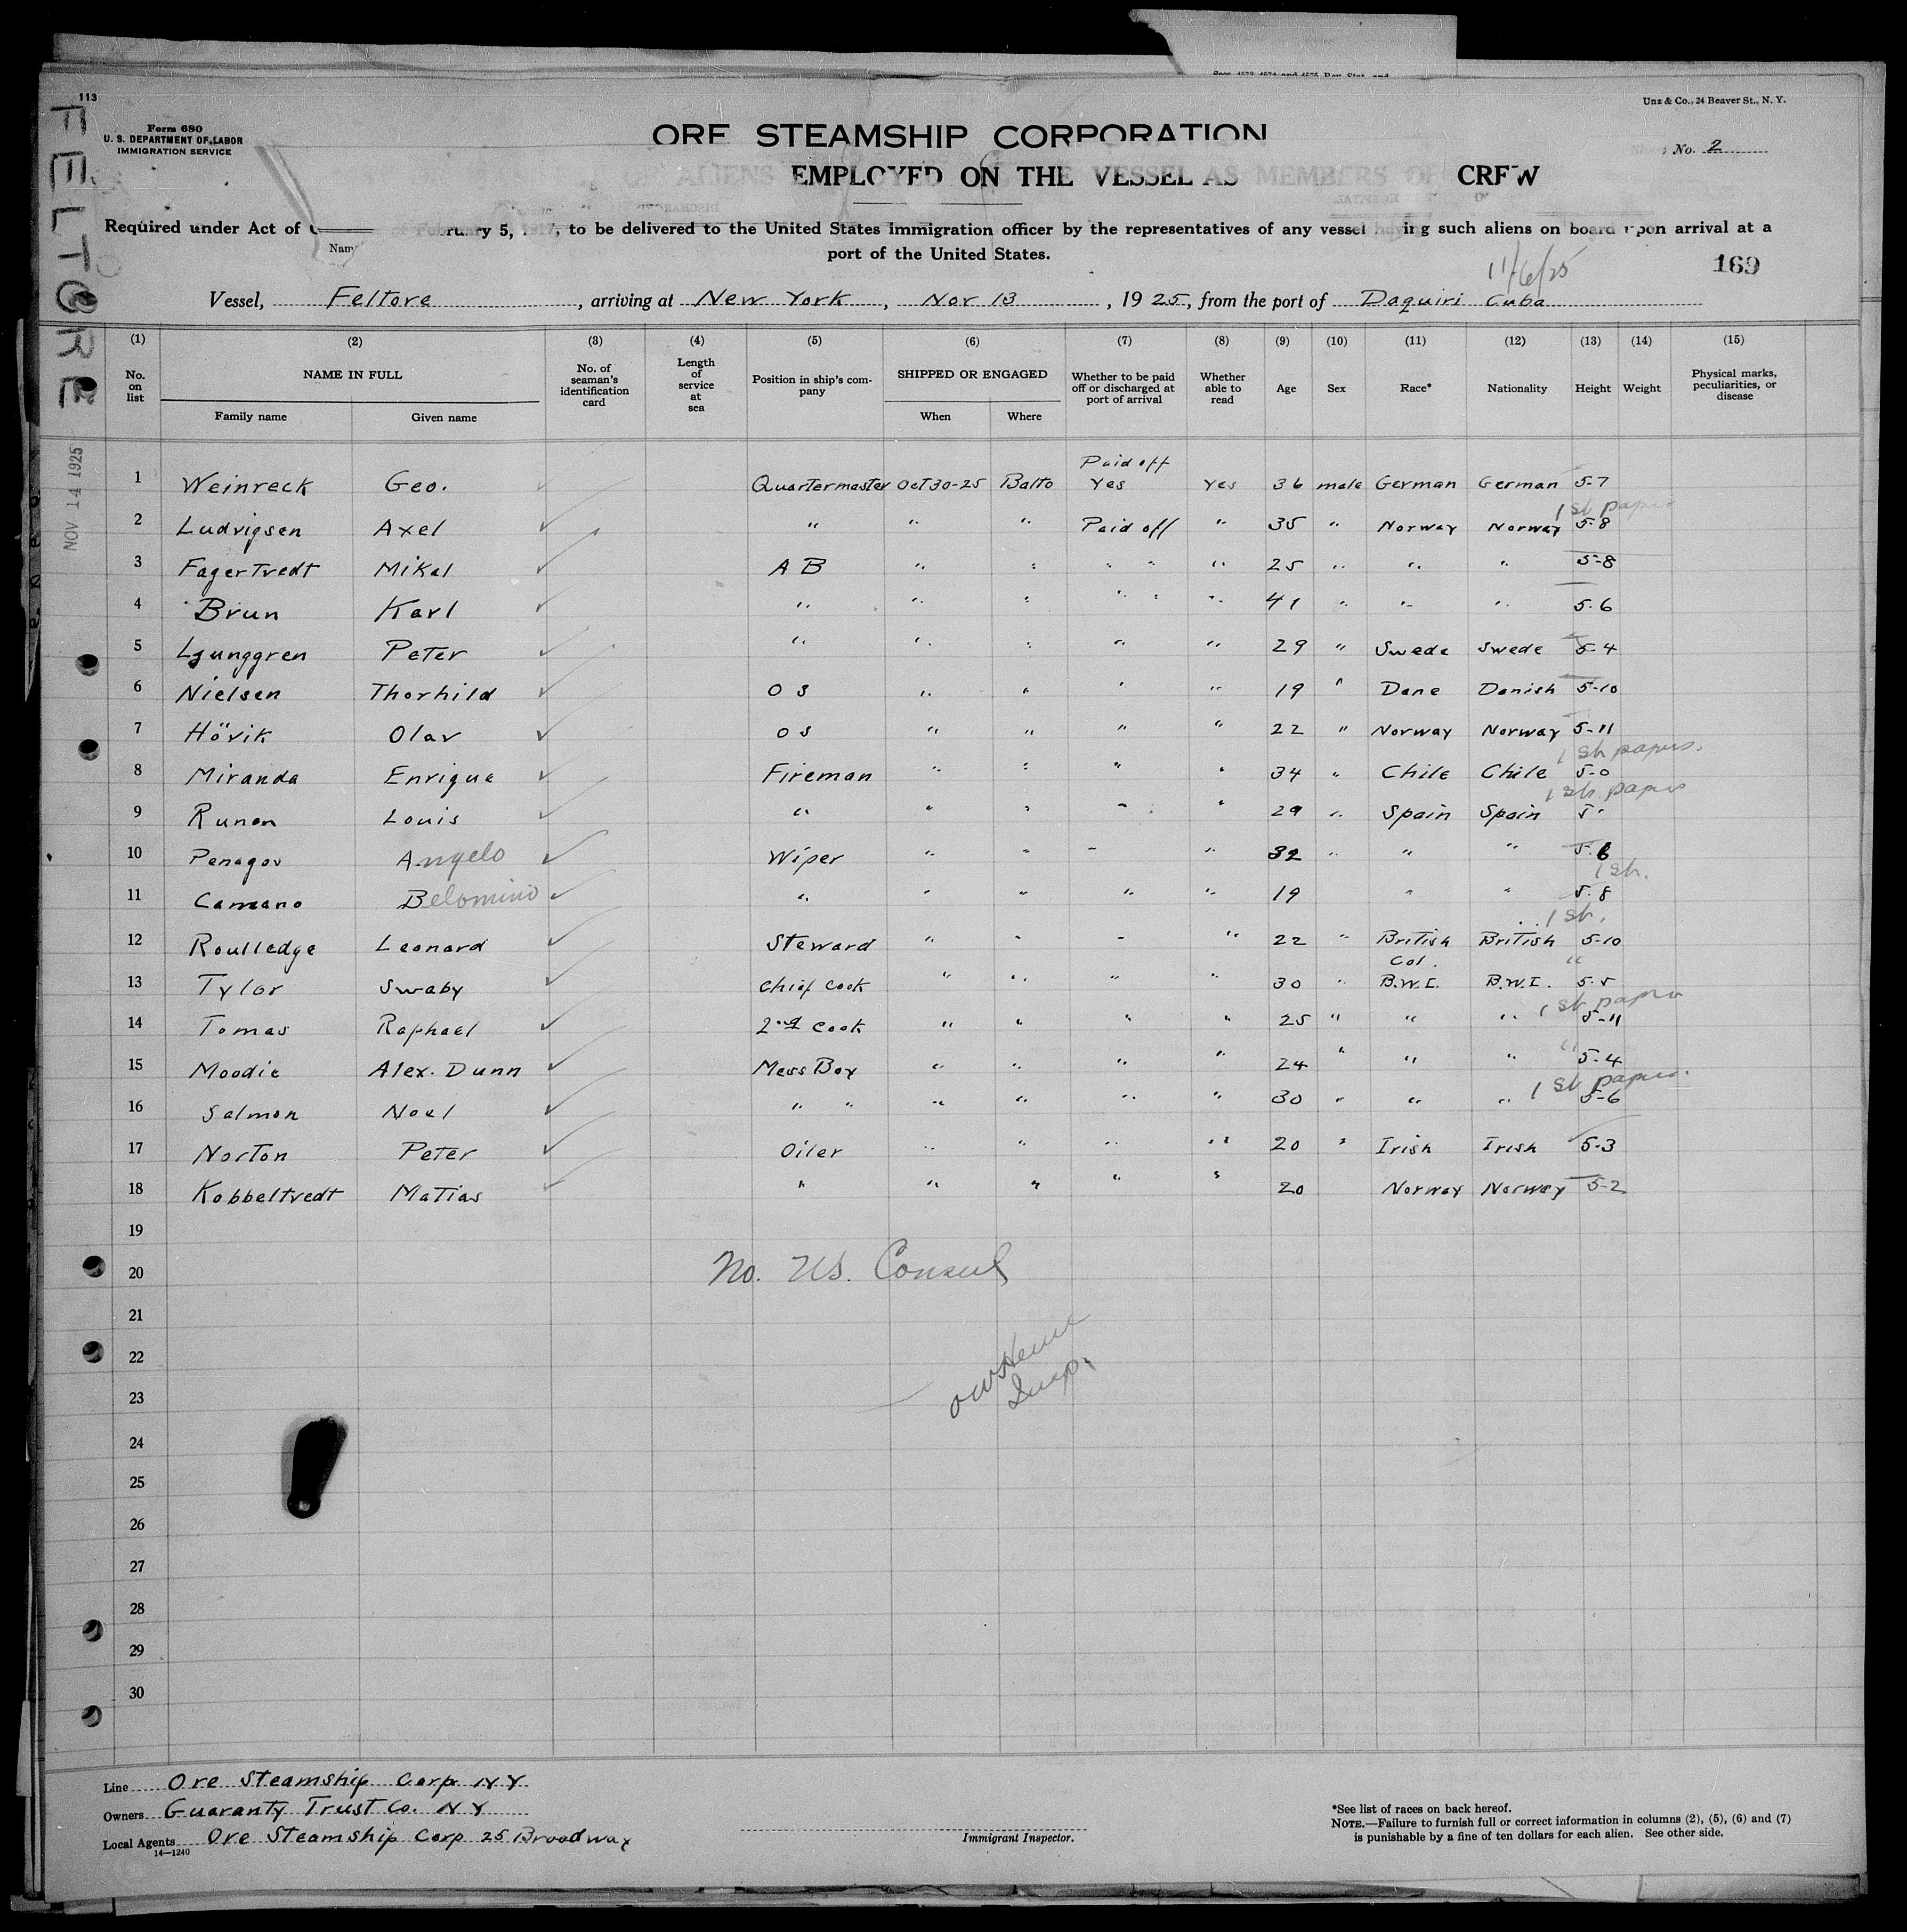 113
Unz & Co., 24 Beaver St., N. Y.
Form 680
U. S. DEPARTMENT OF LABOR
IMMIGRATION SERVICE
ORE STEAMSHIP CORPORATION
No. 2
ALIENS EMPLOYED ON THE VESSEL AS MEMBERS OF CREW
Required under Act of February 5, 1917, to be delivered to the United States immigration officer by the representatives of any vessel having such aliens on board upon arrival at a
port of the United States.
11/6/25
169
Vessel, Feltore, arriving at New York, Nov 13, 1925, from the port of Daquiri Cuba
FELTORE
NOV 14 1925
(1) (2) (3) (4) (5) (6) (7) (8) (9) (10) (11) (12) (13) (14) (15)
No. on list NAME IN FULL Family name Given name No. of seaman's identification card Length of service at sea Position in ship's company SHIPPED OR ENGAGED When Where Whether to be paid off or discharged at port of arrival Whether able to read Age Sex Race* Nationality Height Weight Physical marks, peculiarities, or disease
Paid off
1 Weinreck Geo. Quartermaster Oct 30-25 Balto Yes Yes 36 male German German 5-7
1st papers
2 Ludvigsen Axel " " " Paid off " 35 " Norway Norway 5-8
3 Fagertvedt Mikal A B " " " " " 25 " " " 5-8
4 Brun Karl " " " " " " 41 " " " 5-6
5 Ljunggren Peter " " " " " 29 " Swede Swede 5-4
6 Nielsen Thorhild O S " " " " 19 " Dane Danish 5-10
7 Hövik Olav O S " " " " 22 " Norway Norway 5-11
1st papers.
8 Miranda Enrique Fireman " " " " 34 " Chile Chile 5-0
1st papers
9 Runon Louis " " " " " 29 " Spain Spain 5'
10 Penagos Angelo Wiper " " " " 32 " " " 5-6
1st.
11 Camano Belomino " " " " " 19 " " 5-8
1st.
12 Roulledge Leonard Steward " " " " 22 " British British 5-10
Col. "
13 Tylor Swaby Chief Cook " " " " 30 " B.W.I. B.W.I. 5-5
1st papers
14 Tomas Raphael 2nd Cook " " " " 25 " " " 5-11
"
15 Moodie Alex. Dunn Mess Boy " " " " 24 " " " 5-4
1st papers.
16 Salmon Noel " " " " " " 30 " " " 5-6
17 Norton Peter Oiler " " " " 20 " Irish Irish 5-3
18 Kobbeltvedt Matias " " " " " 20 Norway Norway 5-2
19
20 No. US. Consul
21
22
23 Insp.
24
25
26
27
28
29
30
Line Ore Steamship Corp NY
Owners Guaranty Trust Co. NY
Local Agents Ore Steamship Corp 25 Broadway
14—1240
Immigrant Inspector.
*See list of races on back hereof.
NOTE.—Failure to furnish full or correct information in columns (2), (5), (6) and (7)
is punishable by a fine of ten dollars for each alien. See other side.